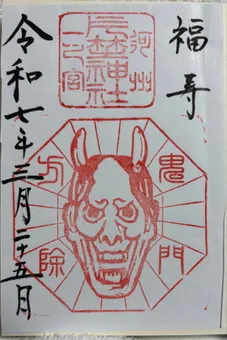 福寿
河州
片埜神社
一之宮
鬼門
方除
令和七年三月二十五日